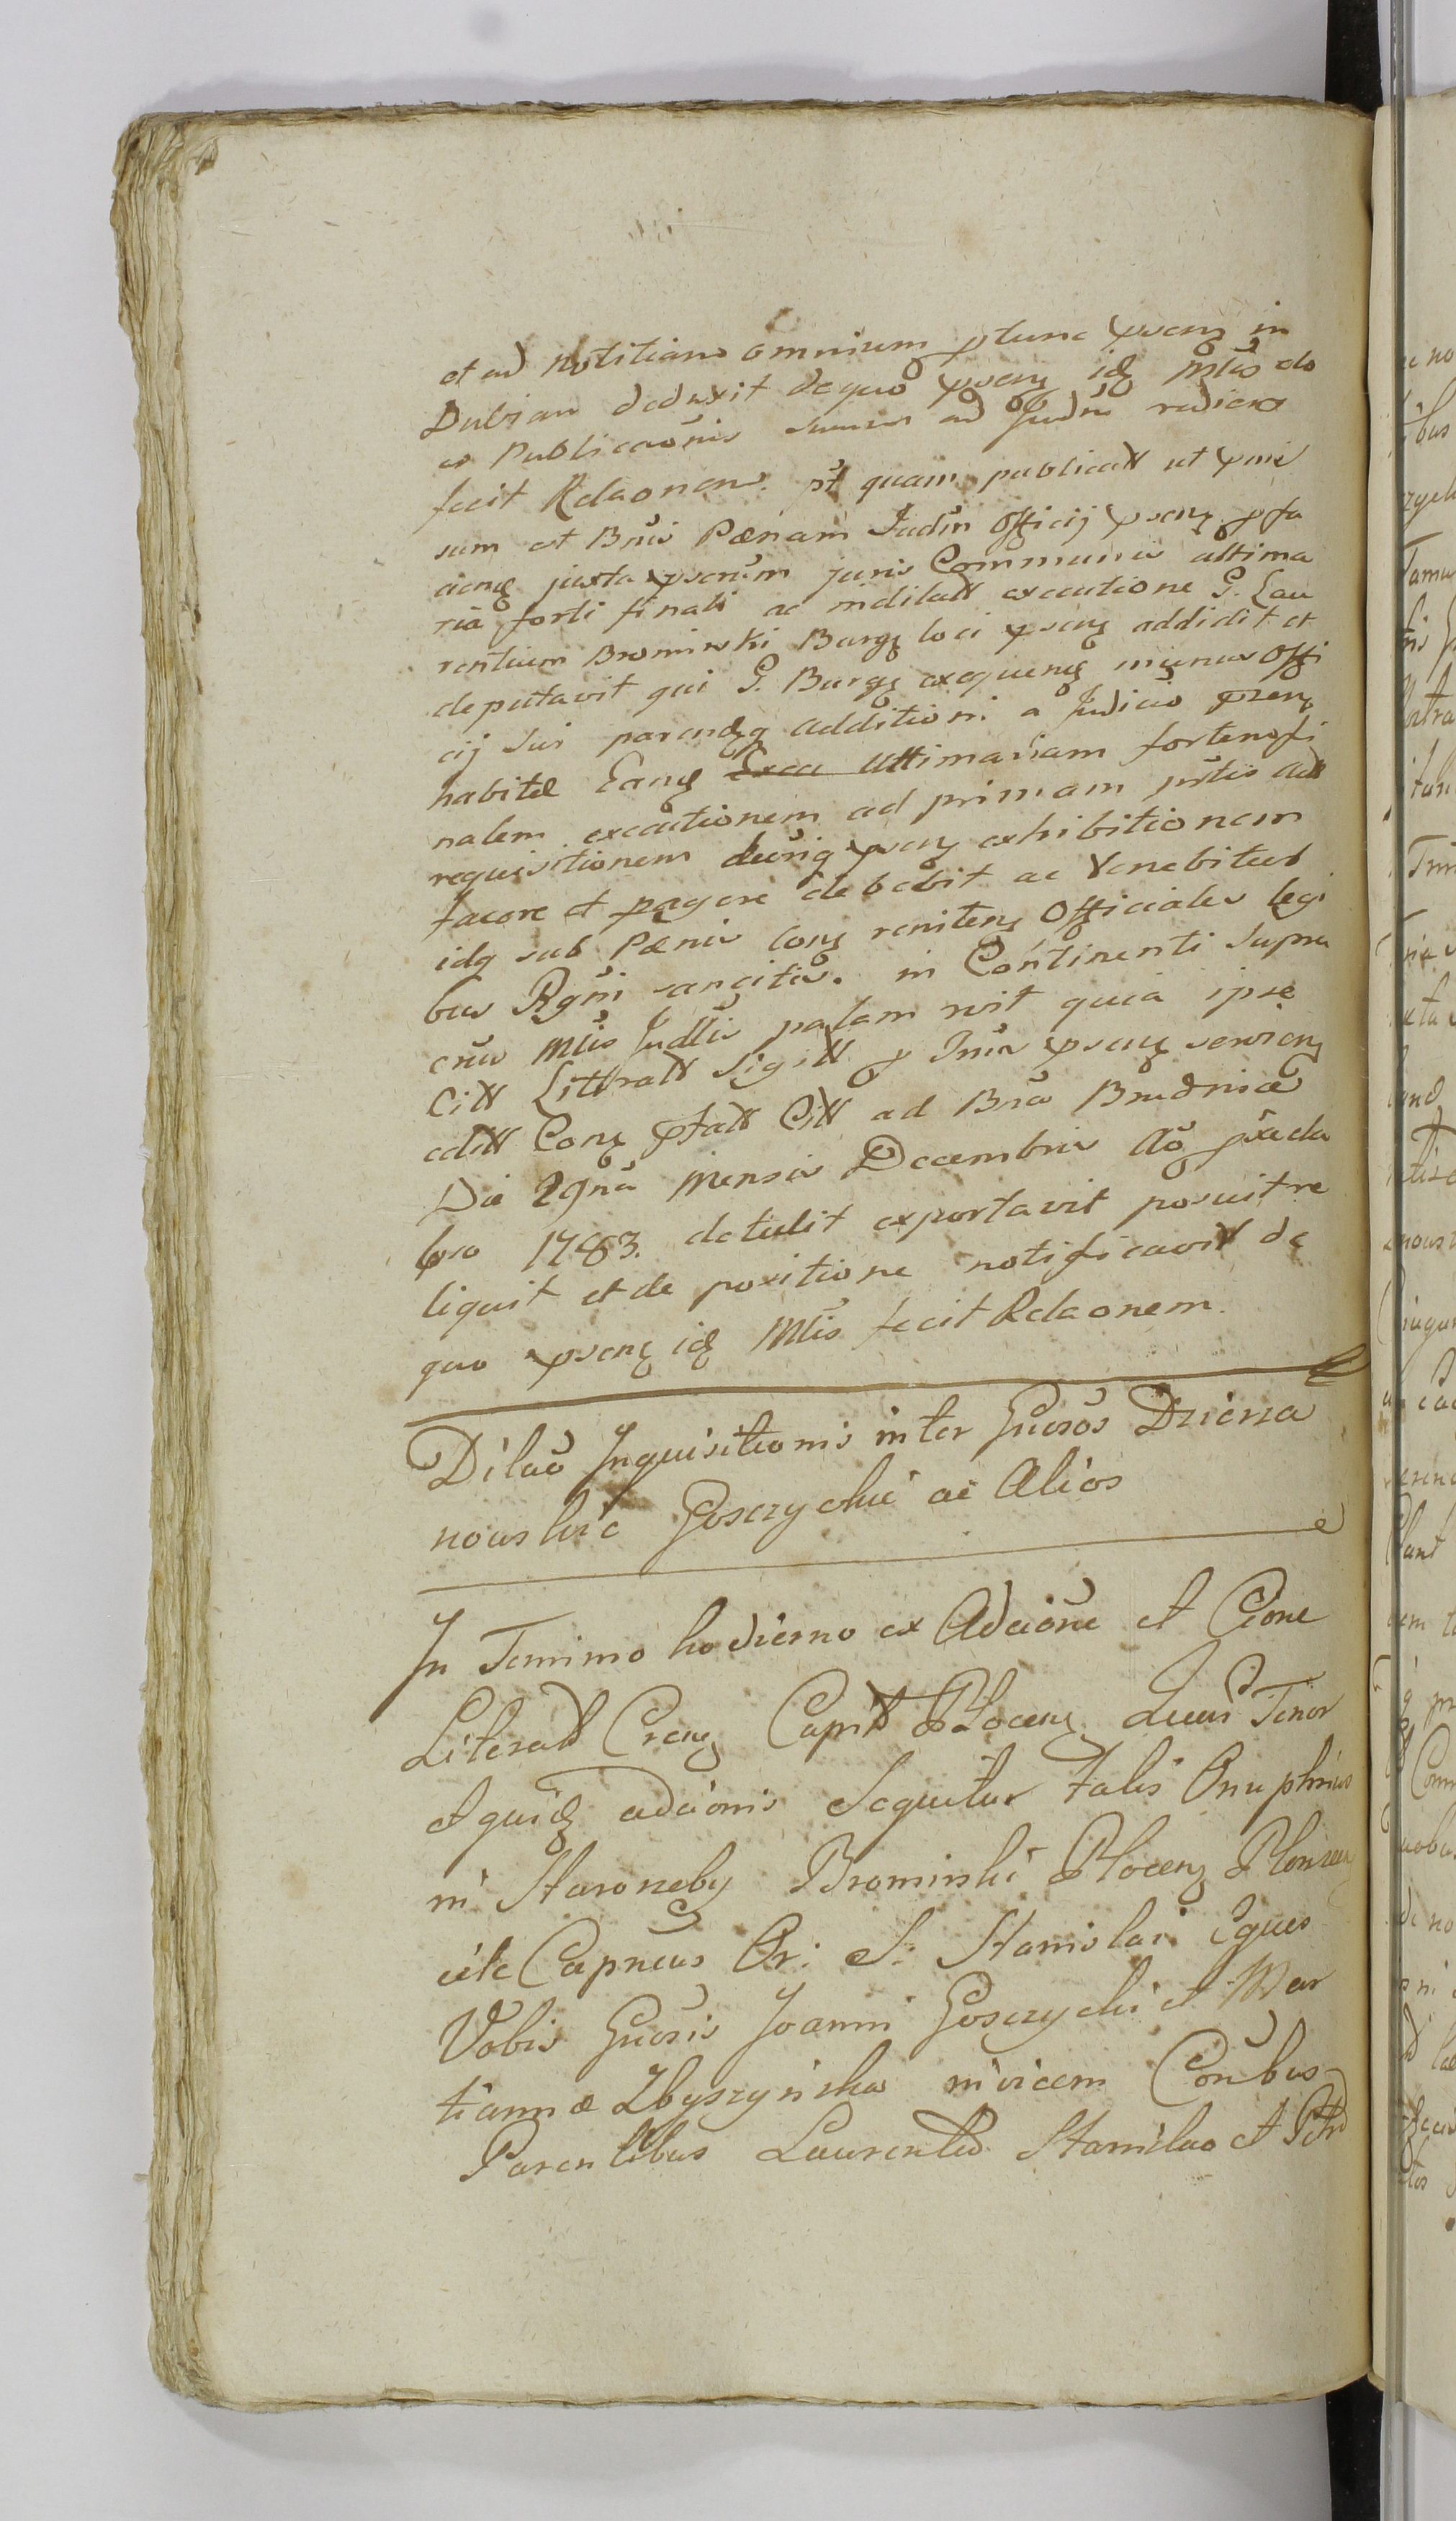 et ad Notitiam omnium ptunc pseng in
Dubian deduxit de quo pseng idg Mtis do
ac Publicaonis suum ad Judm rediens
fecit Relaonem. pt quam publicatt ut pmis
sum et Bnis Pænam Judin Officij pseng p fa
cieng juxta psenum juris Communis ultima
ria forti finali ac indilatt executione G. Lau
rentium Brominski Burgg loci pseng addidit et
deputavit qui G. Burgg exequeng munus Offi
cij sui parendgg additioni a Judicio pzeng
habitæ Eang Exea Ultimariam fortem fi
nalem executionem ad primam prtis Act
requisitionem decrig pseng exhibitionem
facere et pagere debebit ac tenebitur
idg sub Pænis Cong reniteng Officiales legi
bus Rgni sancitis. in Continenti supra
crus Mtis Judtis palam rvit quia ipse
Citt Littratt Sigitt p Jnia pseng servieng
editt Cong ptatt Citt ad Bna Brudnice
Die 29na Mensis Decembris Ao præda
pso 1783. detulit exportavit posuit re
liquit et de positione notificavit de
quo pseng idg Mtis fecit Relaonem.
Dilao Inquisitionis inter Gnosos Dzierza
nowskie Goszczyckie ac Alios
In Termino hodierno ex Adcione et Cione
Literatt Creng Capitt Ploceng Quar Tenor
et quidg adcionis Sequitur talis Onuphrius
in Starozreby Brominski Ploceng Plonzeng
ctc Capneus Or: S. Stanislai Eques
Vobis Gnosis Joanni Gosczycki et Mar
tiannæ Zbyszynska invicem Conbus
Parentibus Laurentio Stanislao et Petro